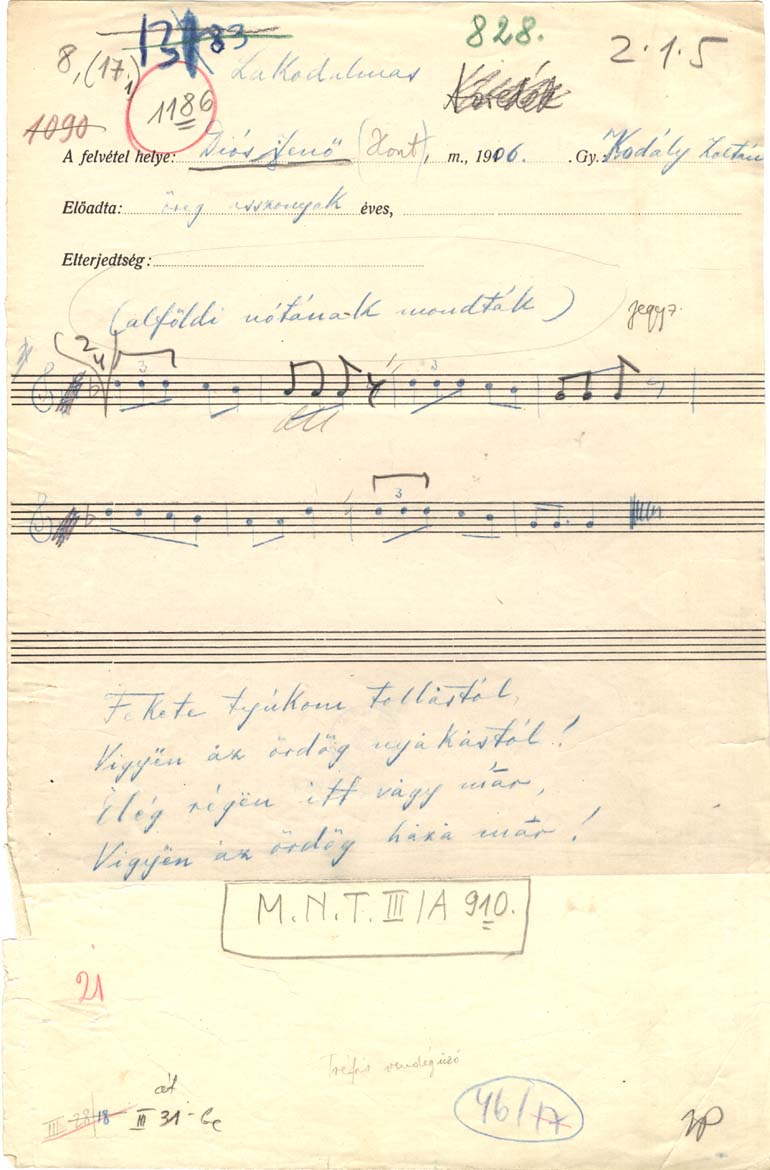 828.
2.1.5
83
8, (17,)
Lakodalmas
1186
1090
A felvétel helye: Diós Jenő (Hont), m., 1906. Gy. Kodály Zoltán
Előadta: öreg asszonyok éves,
Elterjedtség:
(alföldi nótának mondták) jegyz.
2/4
3 3
3
Fekete tyúkom tollástól,
Vigyën áz ördög nyákástól!
Elég régën itt vágy már,
Vigyën áz ördög házá már!
M.N.T. III/A 910.
21
Tréfás vendégűző
át
III 28/18 III 31-be
46/17